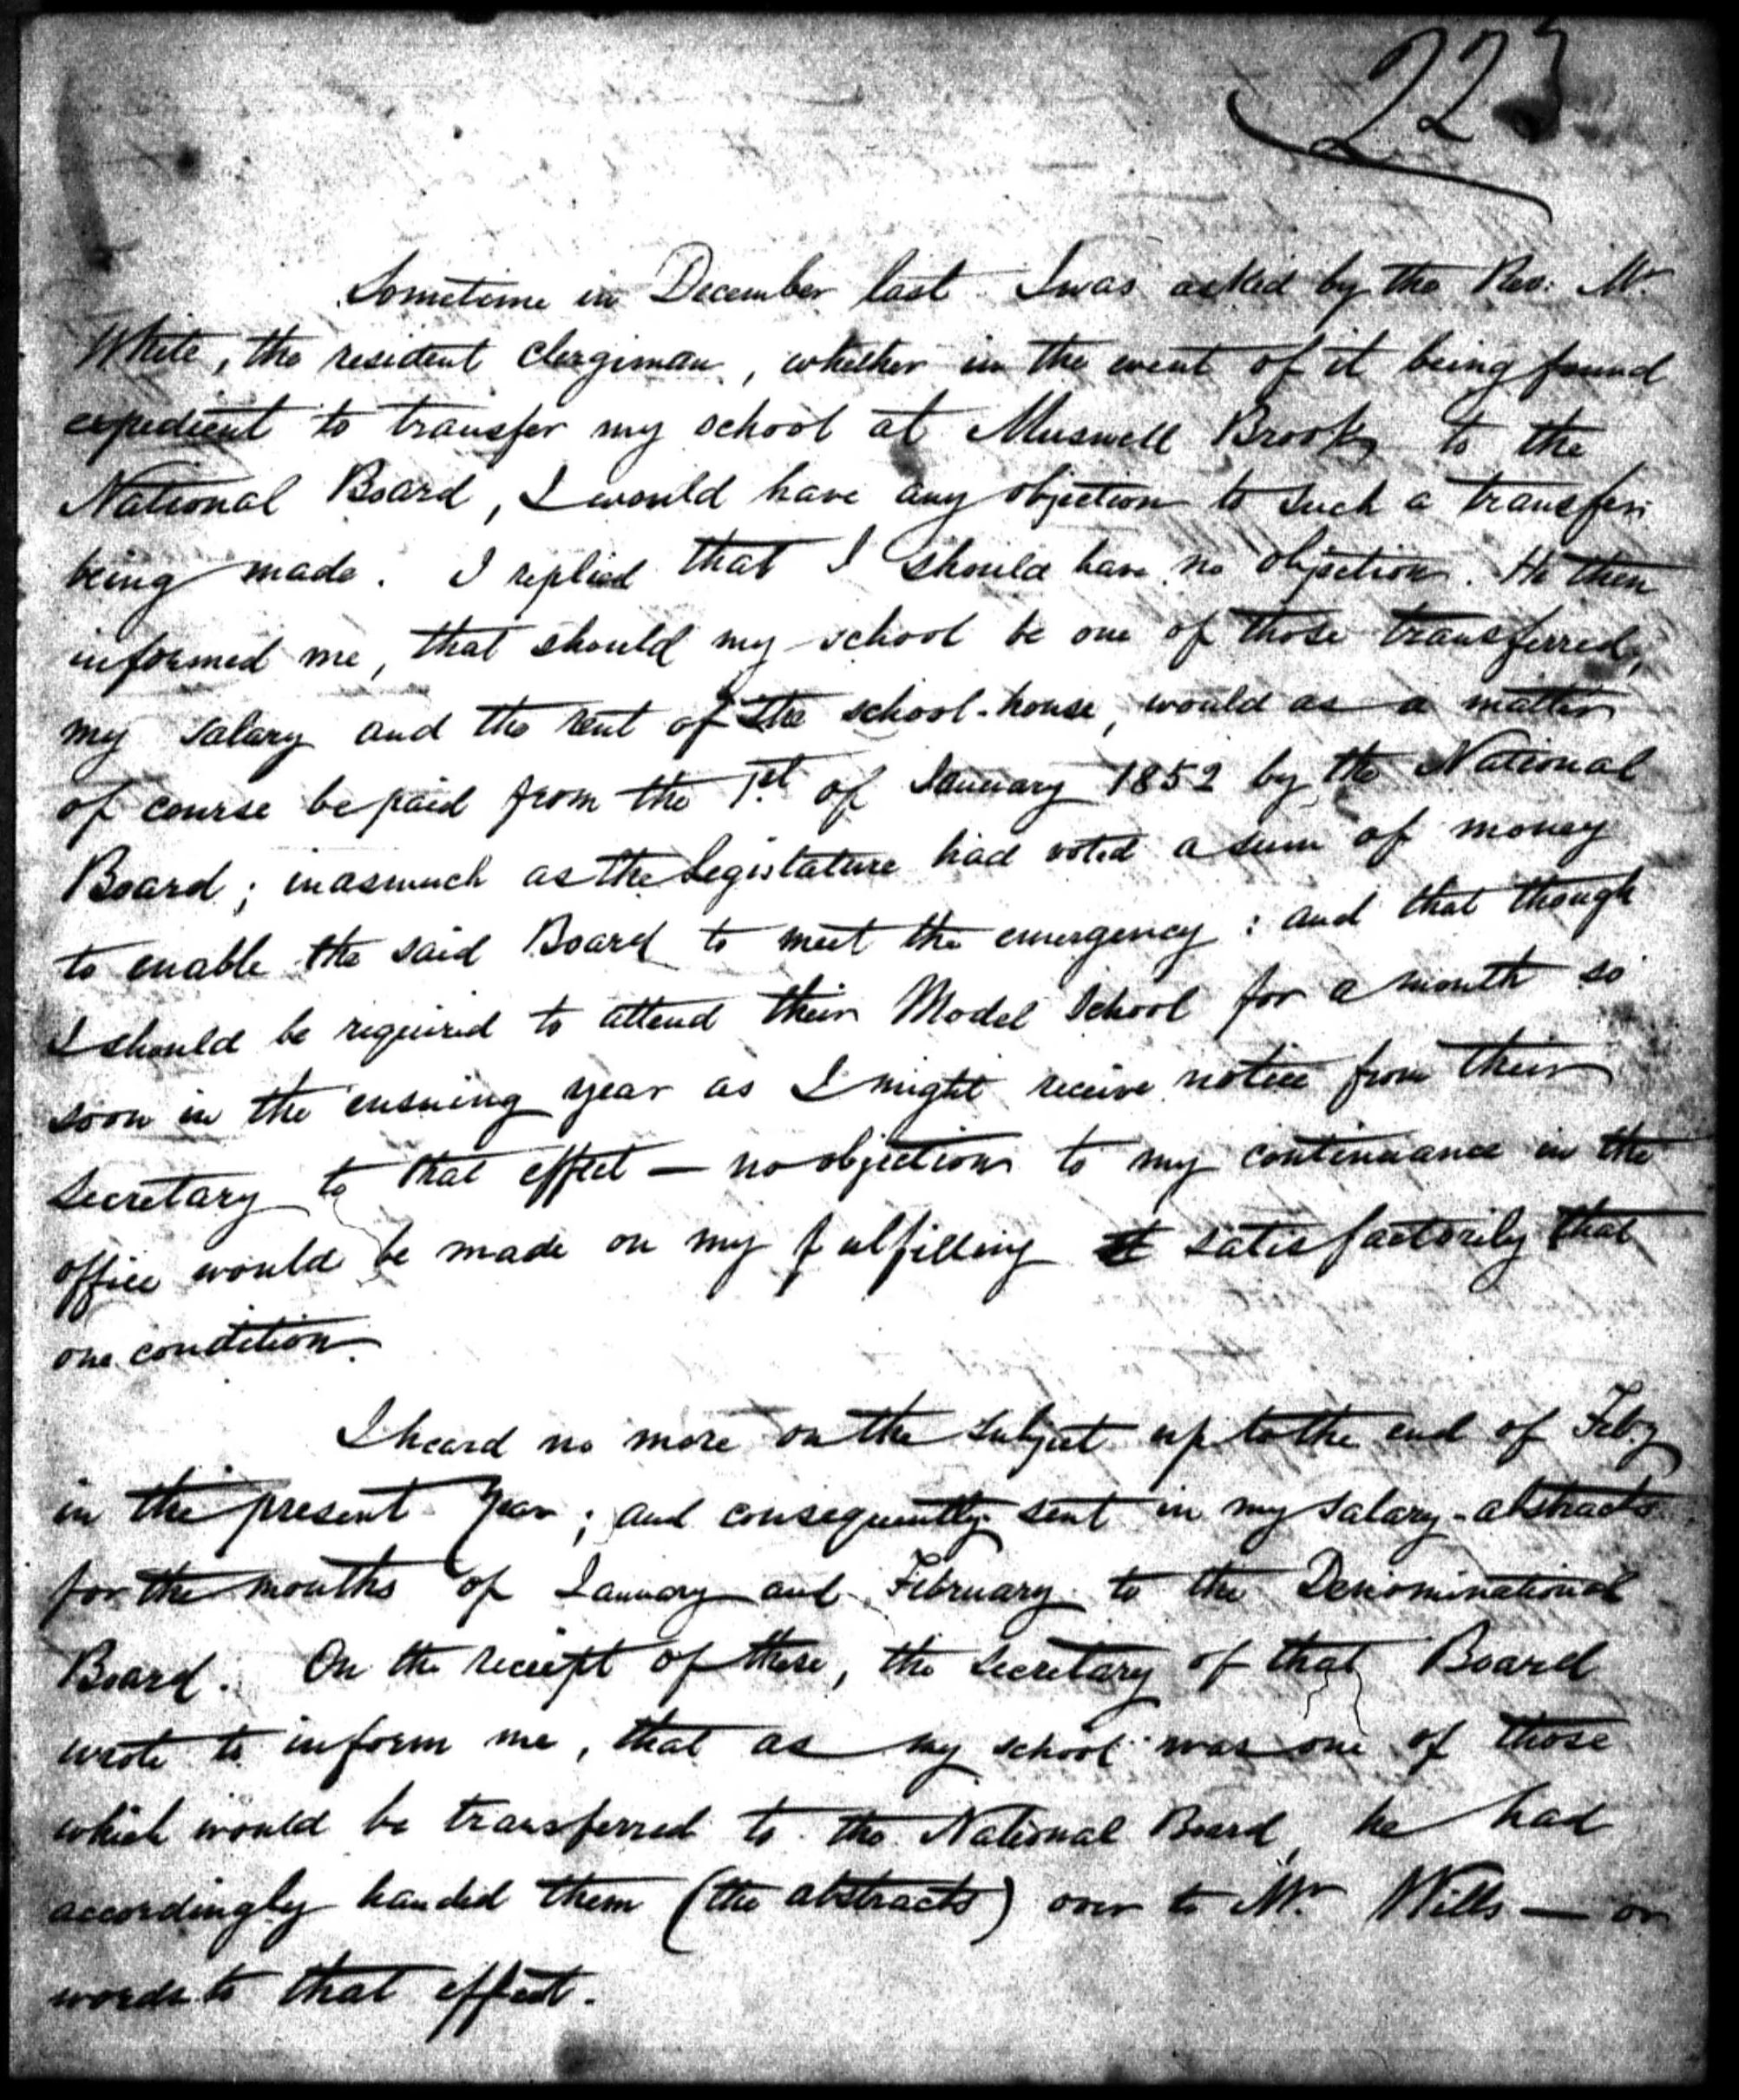 223
Sometime in December last I was asked by the Rev: Mr
White, the resident clergiman, whether in the event of it being found
expedient to transfer my school at Muswell Brook to the
National Board, I would have any objection to such a transfer
being made. I replied that I should have no objection. He then
informed me, that should my school be one of those transferred,
my salary and the rent of the school-house, would as a matter
of course be paid from the 1st of January 1852 by the National
Board; inasmuch as the Legislature had voted a sum of money
to enable the said Board to meet the emergency: and that though
I should be required to attend their Model School for a month so
soon in the ensuing year as I might receive notice from their
Secretary to that effect — no objection to my continuance in the
office would be made on my fulfilling satisfactorily that
one condition.
I heard no more on the subject up to the end of Feb.y
in the present Year; and consequently sent in my salary-abstracts
for the months of January and February to the Denominational
Board. On the receipt of these, the Secretary of that Board
wrote to inform me, that as my school was one of those
which would be transferred to the National Board, he had
accordingly handed them (the abstracts) over to Mr. Wills — or
words to that effect.